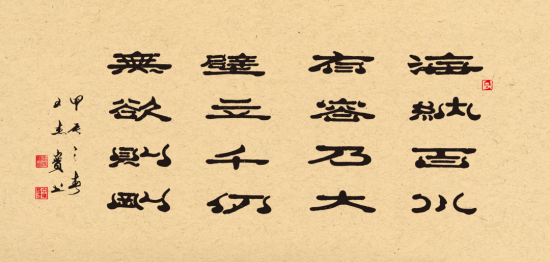 海納百川
有容乃大
壁立千仞
無欲則剛
甲辰之春